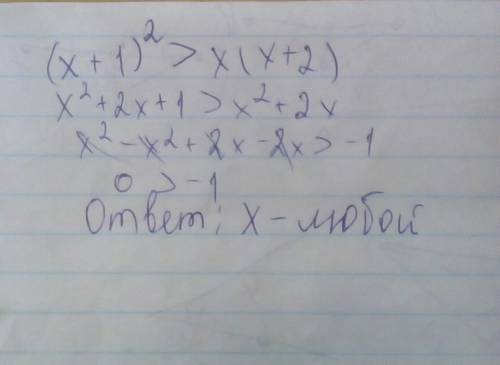 (x+1)² > x(x+2)
x²+2x+1 > x²+2x
x²-x²+2x-2x > -1
0 > -1
Ответ: х-любой